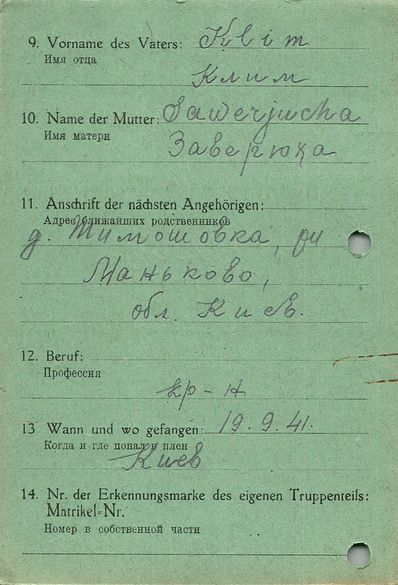 9. Vorname des Vaters: Klim
Имя отца
Клим
10. Name der Mutter: Sawerjucha
Имя матери
Заверюха
11. Anschrift der nächsten Angehörigen:
Адрес ближайших родственников
д. Тимошовка, рн
Маньково,
обл. Киев.
12. Beruf:
Профессия
кр-н
13 Wann und wo gefangen: 19.9.41.
Когда и где попал в плен
Киев
14. Nr. der Erkennungsmarke des eigenen Truppenteils:
Matrikel-Nr.
Номер в собственной части